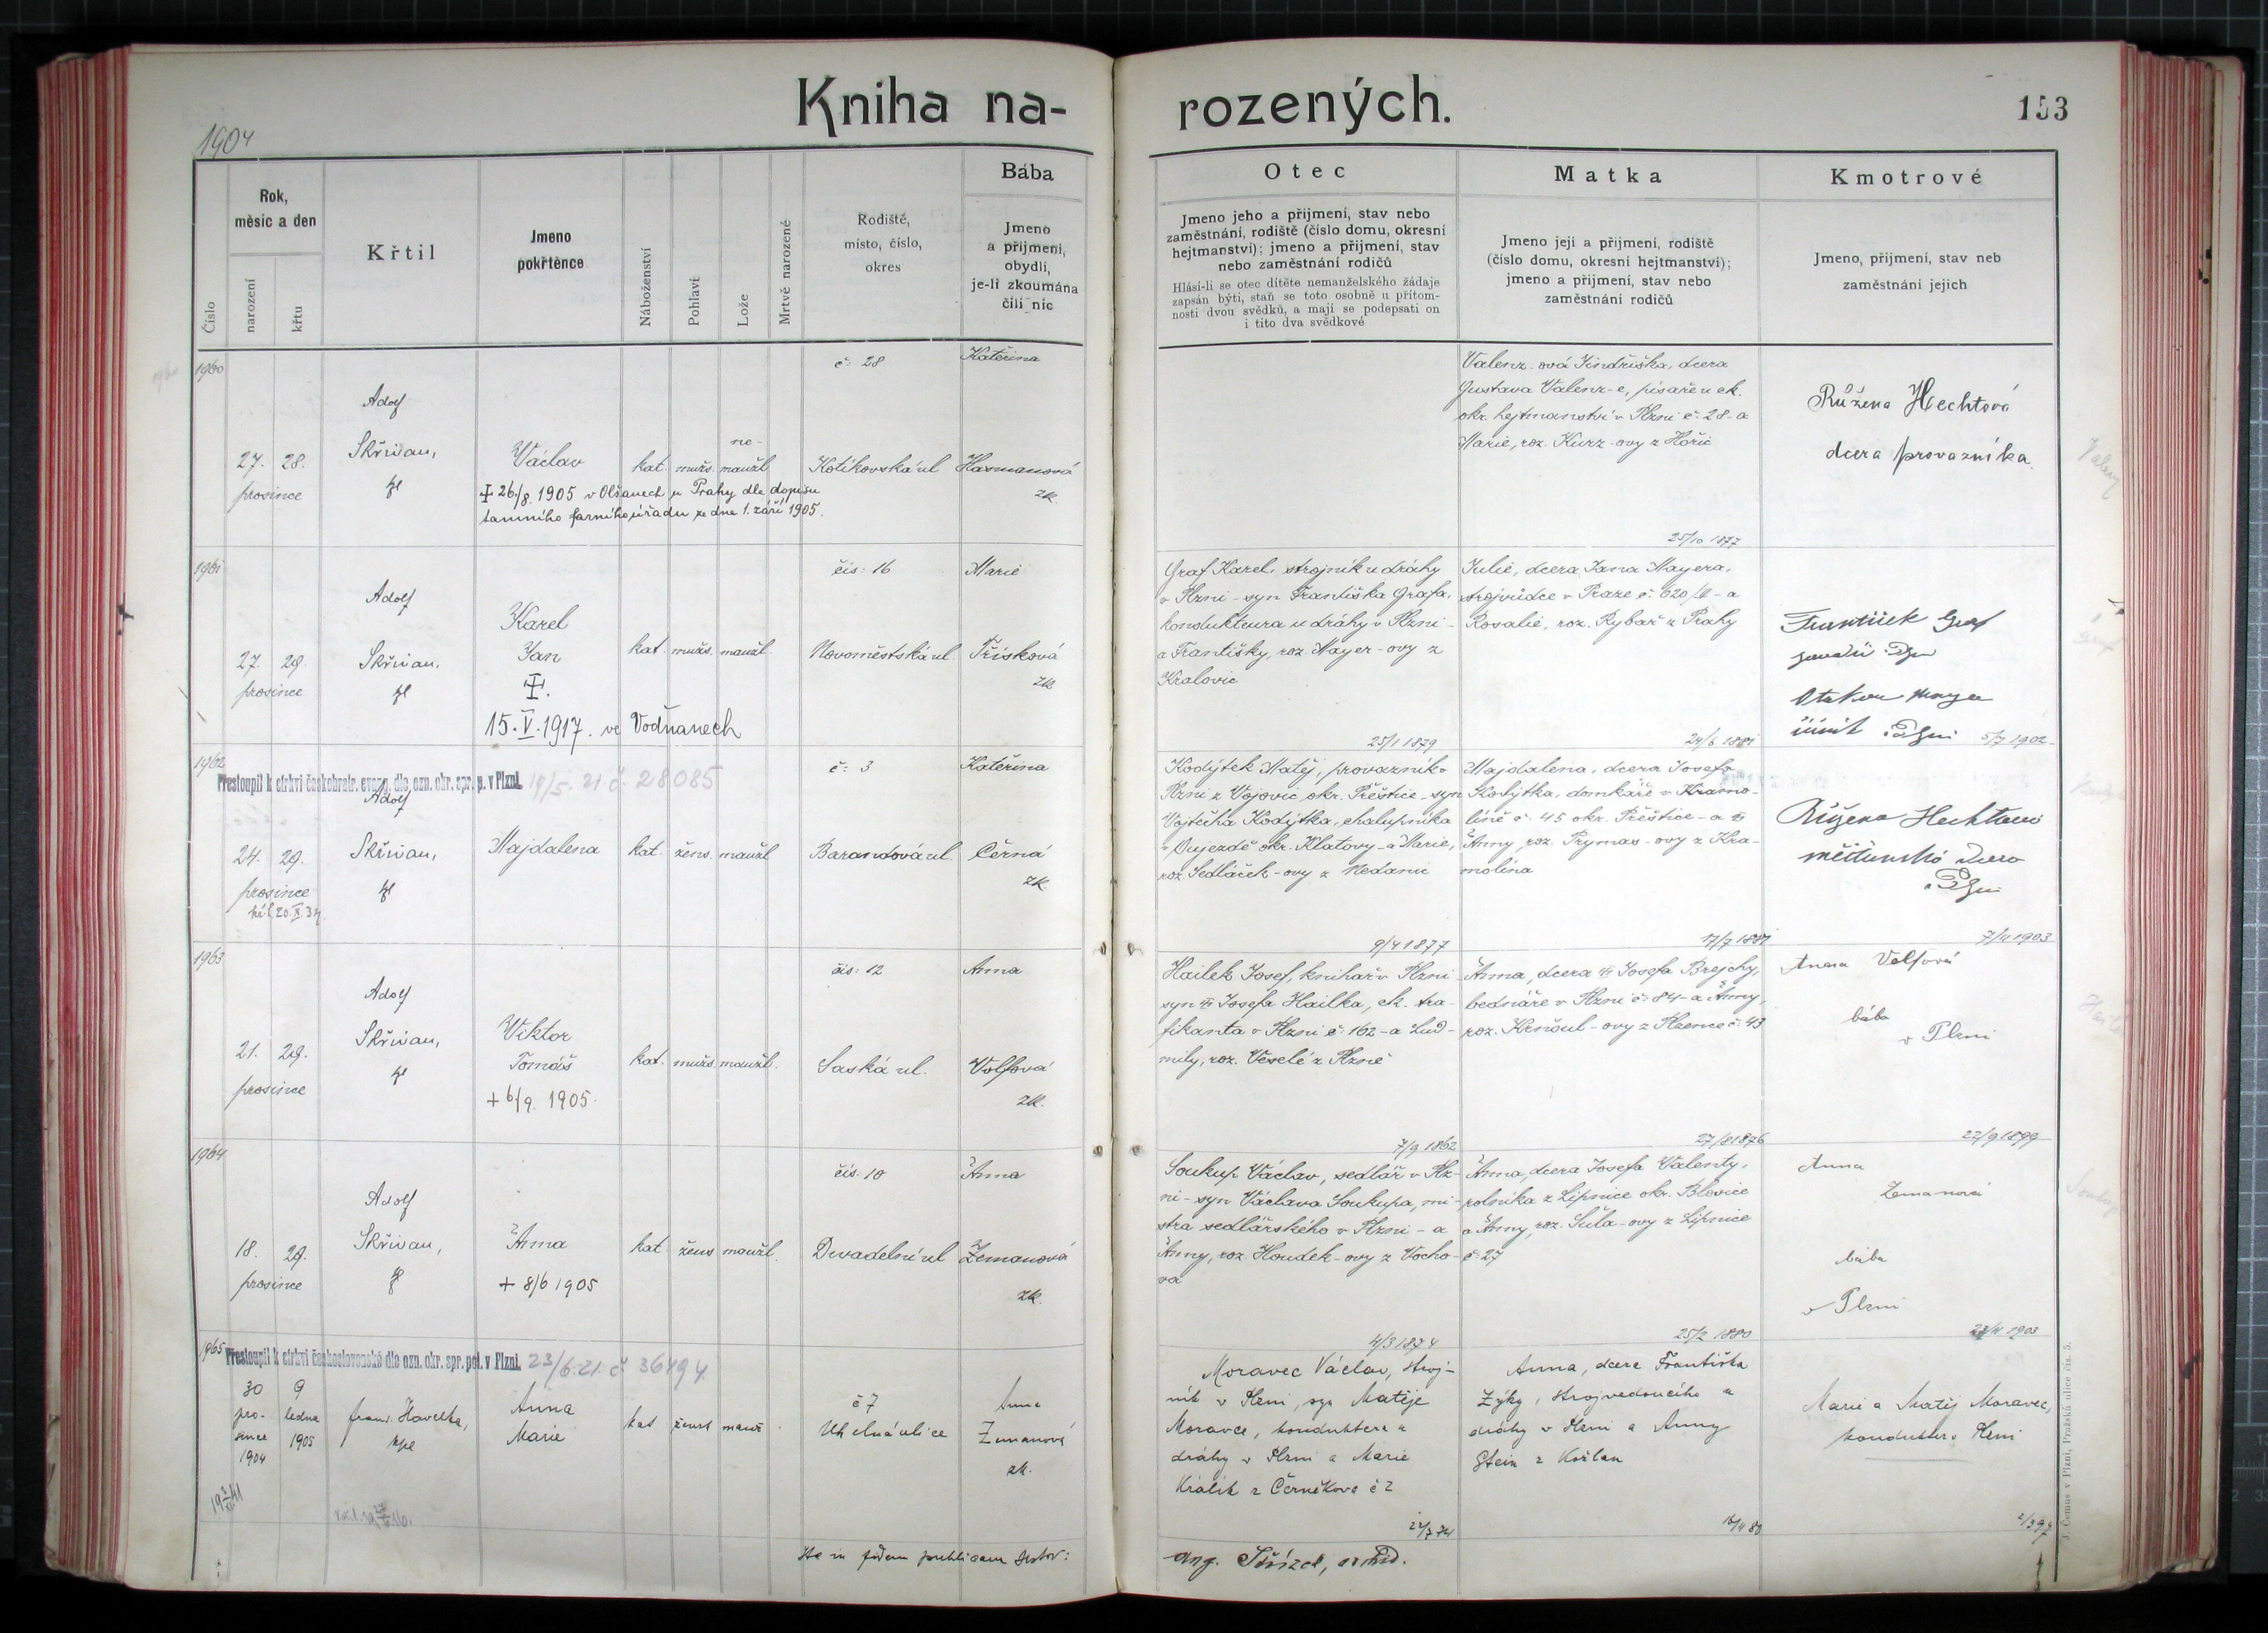 Kniha na-
rozených.
153
1904
Číslo
Rok,
měsíc a den
narození
křtu
Křtil
Jmeno
pokřtěnce
Náboženství
Pohlaví
Lože
Mrtvě narozené
Rodiště,
místo, číslo,
okres
Bába
Jmeno
a příjmení,
obydlí,
je-li zkoumána
čili nic
Otec
Jmeno jeho a příjmení, stav nebo
zaměstnání, rodiště (číslo domu, okresní
hejtmanství); jmeno a příjmení, stav
nebo zaměstnání rodičů
Hlásí-li se otec dítěte nemanželského žádaje
zapsán býti, staň se toto osobně u přítom-
nosti dvou svědků, a mají se podepsati on
i tito dva svědkové
Matka
Jmeno její a příjmení, rodiště
(číslo domu, okresní hejtmanství);
jmeno a příjmení, stav nebo
zaměstnání rodičů
Kmotrové
Jmeno, příjmení, stav neb
zaměstnání jejich
1960
27. 28.
prosince
Adolf
Skřivan,
Václav
kat. mužs. ne-
manžl.
č: 28
Kotíkovská ul
Kateřina
Hasmanová
zk.
+ 26/8. 1905 v Olšanech u Prahy dle dopisu
tamního farního úřadu ze dne 1. září 1905.
Valenz-ová Jindřiška, dcera
Gustava Valenz-e, písaře u ck.
okr. hejtmanství v Plzni č. 28 - a
Marie, roz. Kurz-ovy z Hořic
25/10 1877
Růžena Hechtová
dcera provazníka.
1961
27. 29.
prosince
Adolf
Skřivan,
Karel
Jan
15. V. 1917. ve Vodňanech
kat. mužs. manžl.
čís: 16
Novoměstská ul.
Marie
Třísková
zk.
Graf Karel, strojník u dráhy
v Plzni - syn Františka Grafa,
kondukteura u dráhy v Plzni -
a Františky, roz. Mayer-ovy z
Kralovic
25/1 1879
Julie, dcera Jana Mayera,
strojvůdce v Praze č. 620/II - a
Rosalie, roz. Rybař z Prahy
24/6 1881
František Graf
5/7 1902
1962
Přestoupil k církvi českobratr. evang. dle ozn. okr. spr. p. v Plzni. 19/5. 21 č. 28085
24. 29.
prosince
Adolf
Skřivan,
Majdalena
kat. žens. manžl
č: 3
Barandová ul.
Kateřina
Černá
zk.
Kodýtek Matěj, provazník v
Plzni z Vojovic okr. Přeštice - syn
Vojtěcha Kodýtka, chalupníka
v Oujezdě okr. Klatovy - a Marie,
roz. Sedláček-ovy z Nedanic
9/4 1877
Majdalena, dcera Josefa
Kodýtka, domkáře v Kramo-
líně č. 45 okr. Přeštice - a
Anny, roz. Prymas-ovy z Kra-
molína
17/7 1881
Růžena Hechtová
7/4 1903
1963
21. 29.
prosince
Adolf
Skřivan,
Viktor
Tomáš
+ 6/9. 1905.
kat. mužs. manžl.
čís: 12
Saská ul.
Anna
Volfová
zk.
Hailek Josef, knihař v Plzni
syn Josefa Hailka, ck. tra-
fikanta v Plzni č. 162 - a Lud-
mily, roz. Veselé z Plzně
7/9 1862
Anna, dcera Josefa Brejchy,
bednáře v Plzni č. 84 - a Anny,
roz. Krňoul-ovy z Plzence č. 43
27/8 1876
Anna Volfová
bába
v Plzni
22/9 1899
1964
18. 29.
prosince
Adolf
Skřivan,
Anna
+ 8/6 1905
kat. žens manžl.
čís: 10
Divadelní ul
Anna
Zemanová
zk.
Soukup Václav, sedlář v Plz-
ni - syn Václava Soukupa, mi-
stra sedlářského v Plzni - a
Anny, roz. Houdek-ovy z Vocho-
va
4/3 1874
Anna, dcera Josefa Valenty,
rolníka z Lipnice okr. Blovice
a Anny, roz. Šůla-ovy z Lipnice
č. 27
25/2 1880
Anna
Zemanová
bába
v Plzni
1903
1965
Přestoupil k církvi československé dle ozn. okr. spr. pol. v Plzni. 23/6. 21 č. 36194
30 9
pro- ledna
since 1905
1904
Frant. Havelka,
kpl
Anna
Marie
kat ženst manž.
č 7
Uhelná ulice
Anna
Zemanová
zk.
Moravec Václav, stroj-
ník v Plzni, syn Matěje
Moravce, konduktera u
dráhy v Plzni a Marie
Králík z Černíkova č 2
Anna, dcera Františka
Zýky, strojvedoucího u
dráhy v Plzni a Anny
Stein z Kožlan
Marie a Matěj Moravec,
kondukter v Plzni
J. Čermus v Plzni, Pražská ulice čís. 5.